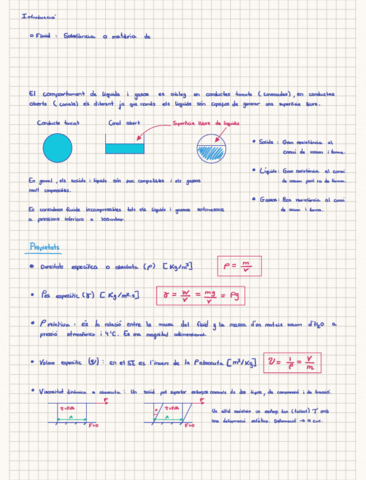 Introducció
o Fluid : Substància o matèria de
El comportament de líquids i gasos és anàleg en conductes tancats (canonades), en conductes
oberts (canals) és diferent ja que només els líquids són capaços de generar una superfície lliure.
Conducte tancat
Canal obert
Superfície lliure de líquids
• Sòlids : Gran resistència al
canvi de volum i forma.
• Líquids : Gran resistència al canvi
de volum però no de forma.
• Gasos : Baixa resistència al canvi
de volum i forma.
En general, els sòlids i líquids són poc compressibles i els gasos
molt compressibles.
Es consideren fluids incompressibles tots els líquids i gasos
a pressions inferiors a
Propietats
• Densitat específica o absoluta (ρ) [Kg/m³]
ρ = m/V
• Pes específic (γ) [Kg/m²·s²]
γ = W/V = mg/V = ρg
• ρ relativa : és la relació entre la massa del fluid y la massa d'un mateix volum d'H₂O a
pressió atmosfèrica i 4°C. És una magnitud adimensional.
• Volum específic (v) : en el SI és l'invers de la ρ absoluta [m³/Kg]
v = 1/ρ = V/m
• Viscositat dinàmica o absoluta : Un sòlid pot suportar esforços normals de dos tipus, de compressió i de tracció.
F
A
F=0
F
A
F=0
Un sòlid sotmès a un esforç tan (tallant) τ amb
una deformació elàstica. Deformació → α